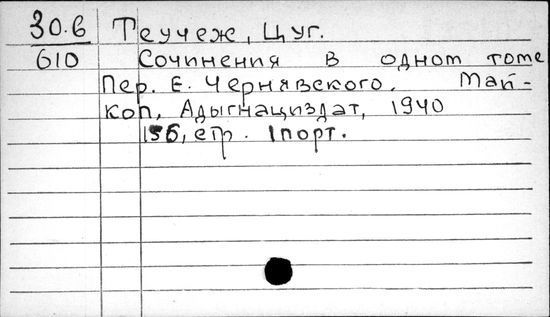 30.6 Теучеж, Цуг.
610 Сочинения в одном томе
Пер. Е. Чернявского. Май-
коп, Адыгнациздат, 1940
156, стр. 1порт.